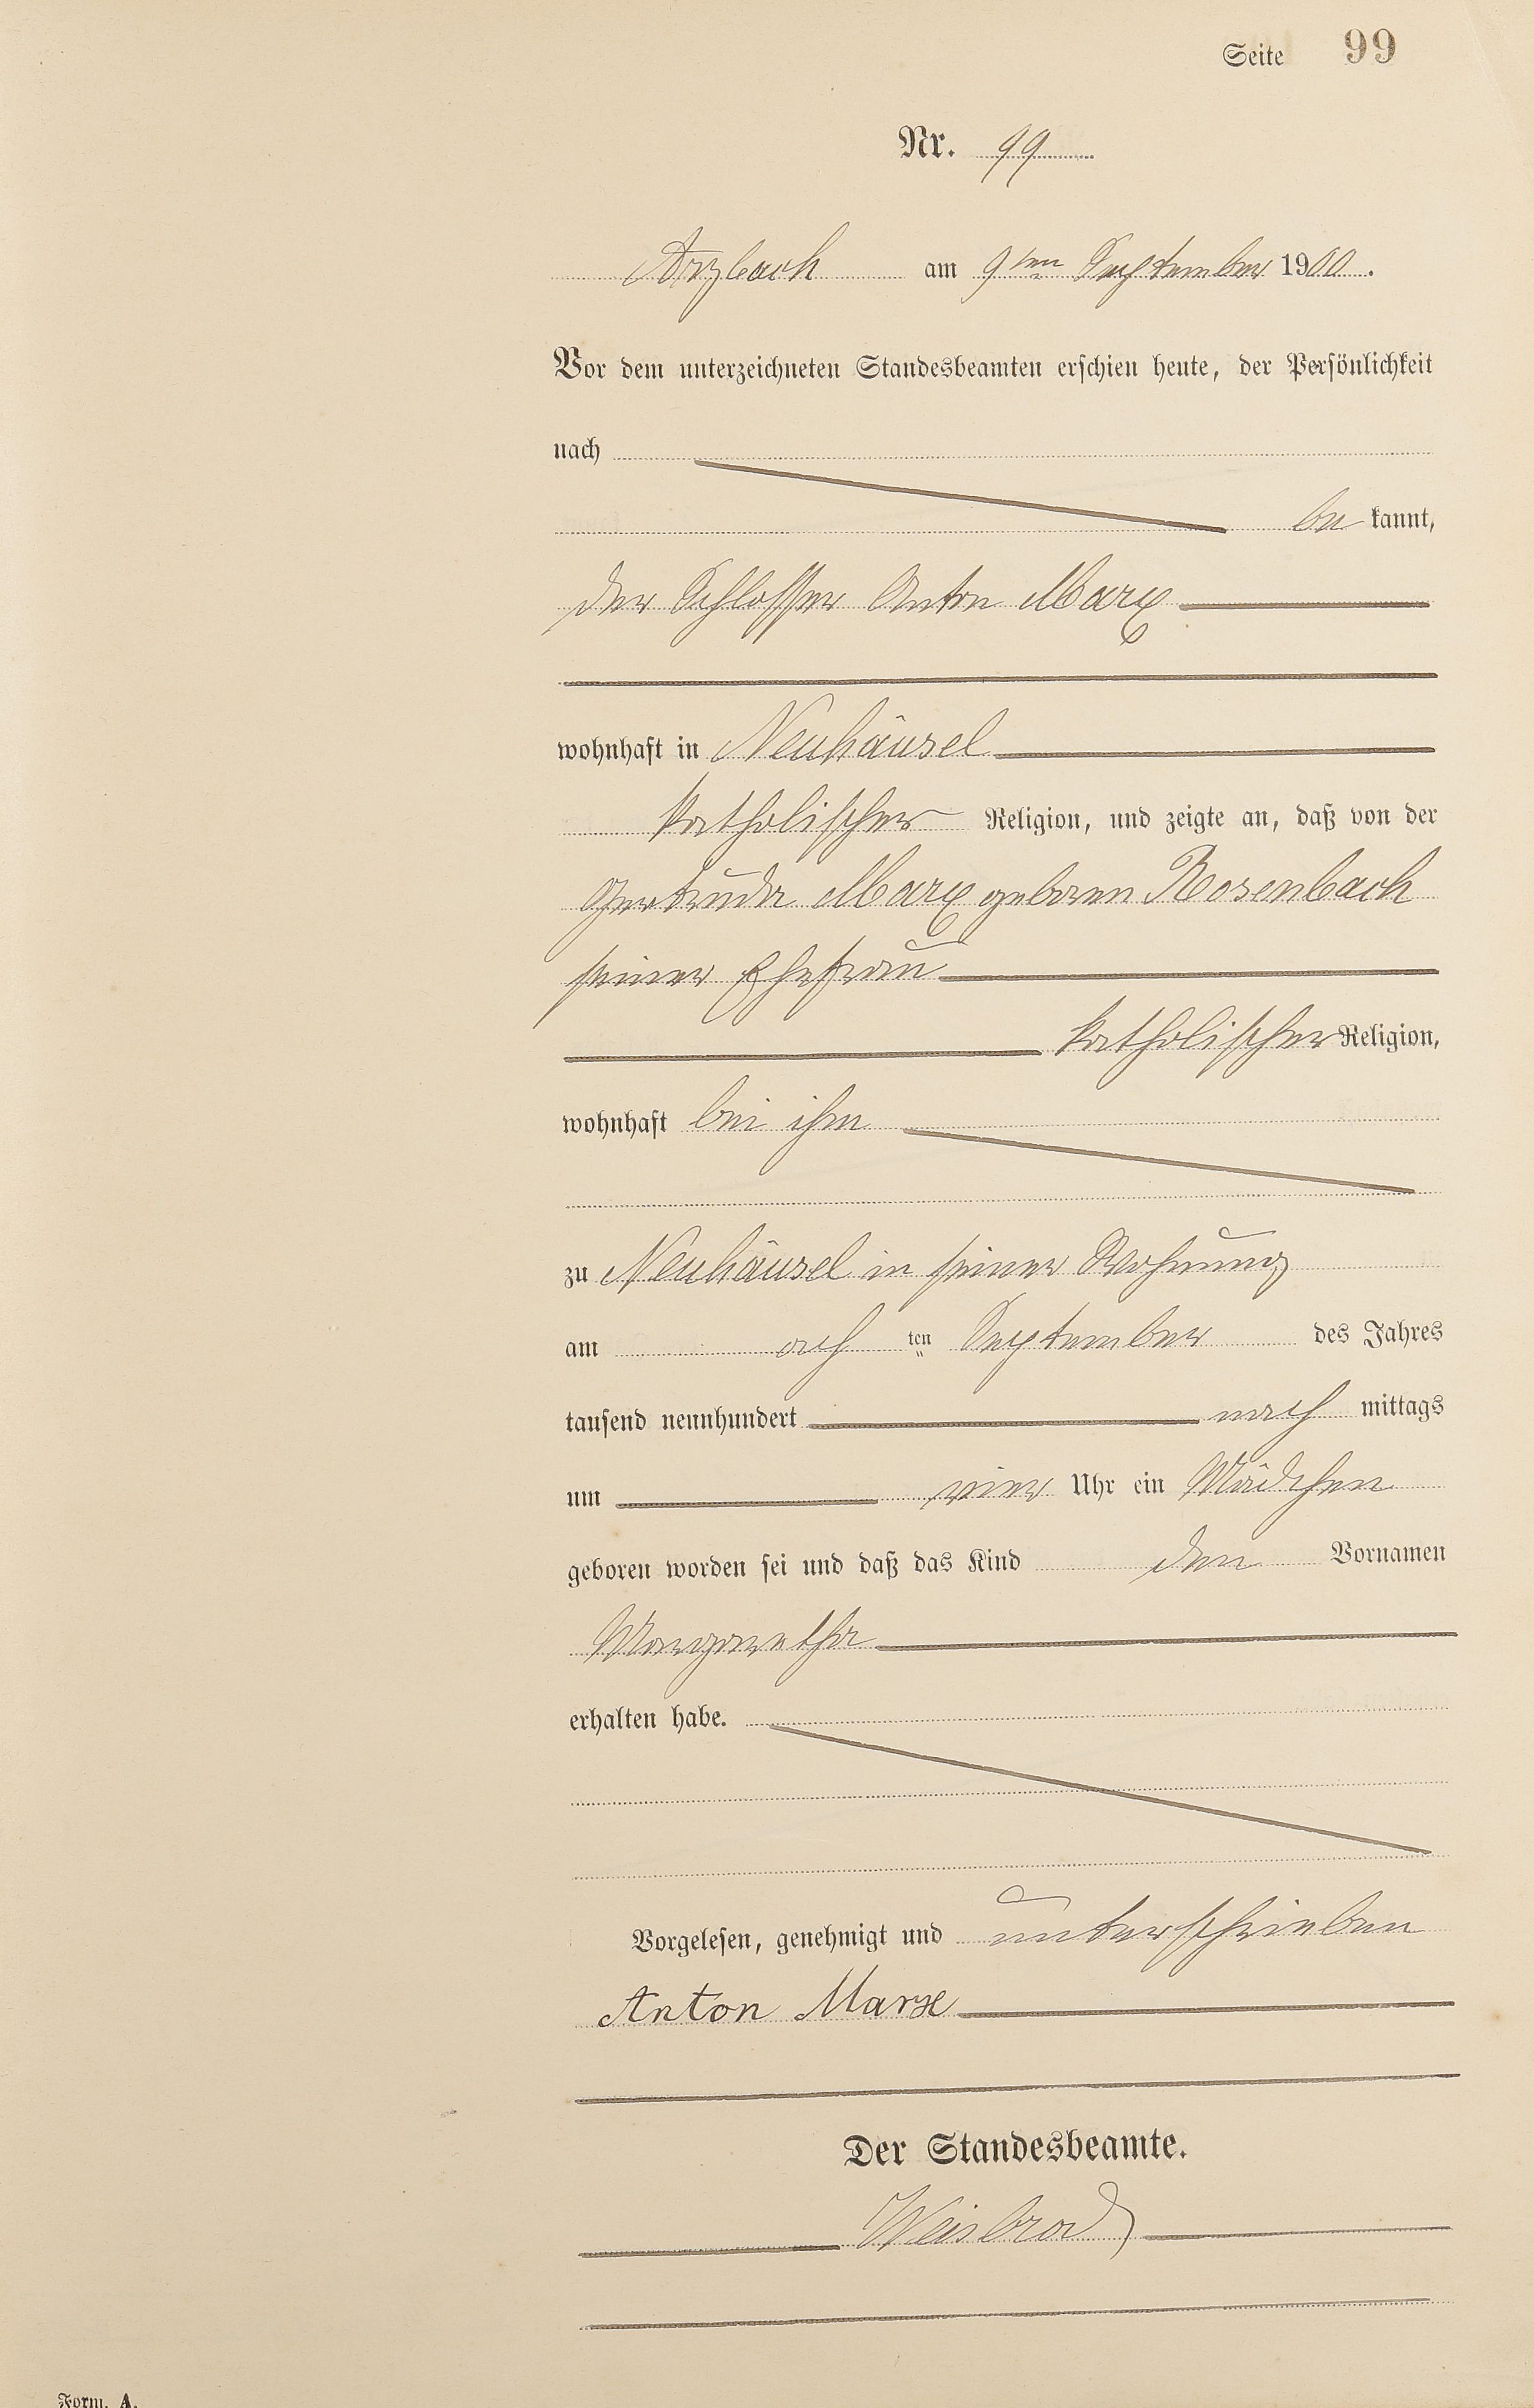 Seite 99
Nr. 99
Arzbach am 9ten September 1900.
Vor dem unterzeichneten Standesbeamten erschien heute, der Persönlichkeit
nach
be kannt,
der Schlosser Anton Marx
wohnhaft in Neuhäusel
katholischer Religion, und zeigte an, daß von der
Gertruda Marx geboren Rosenbach
seiner Ehefrau
katholischer Religion,
wohnhaft bei ihm
zu Neuhäusel in seiner Wohnung
am ach ten September des Jahres
tausend neunhundert nach mittags
um vier Uhr ein Mädchen
geboren worden sei und daß das Kind den Vornamen
Margaretha
erhalten habe.
Vorgelesen, genehmigt und unterschrieben
Anton Marx
Der Standesbeamte.
Weisbrod
Form. A.